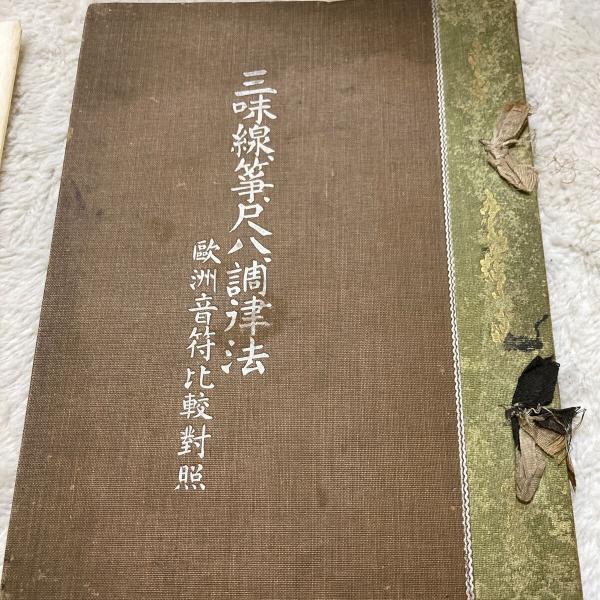 三味線、箏、尺八、調律法
歐洲音符比較對照